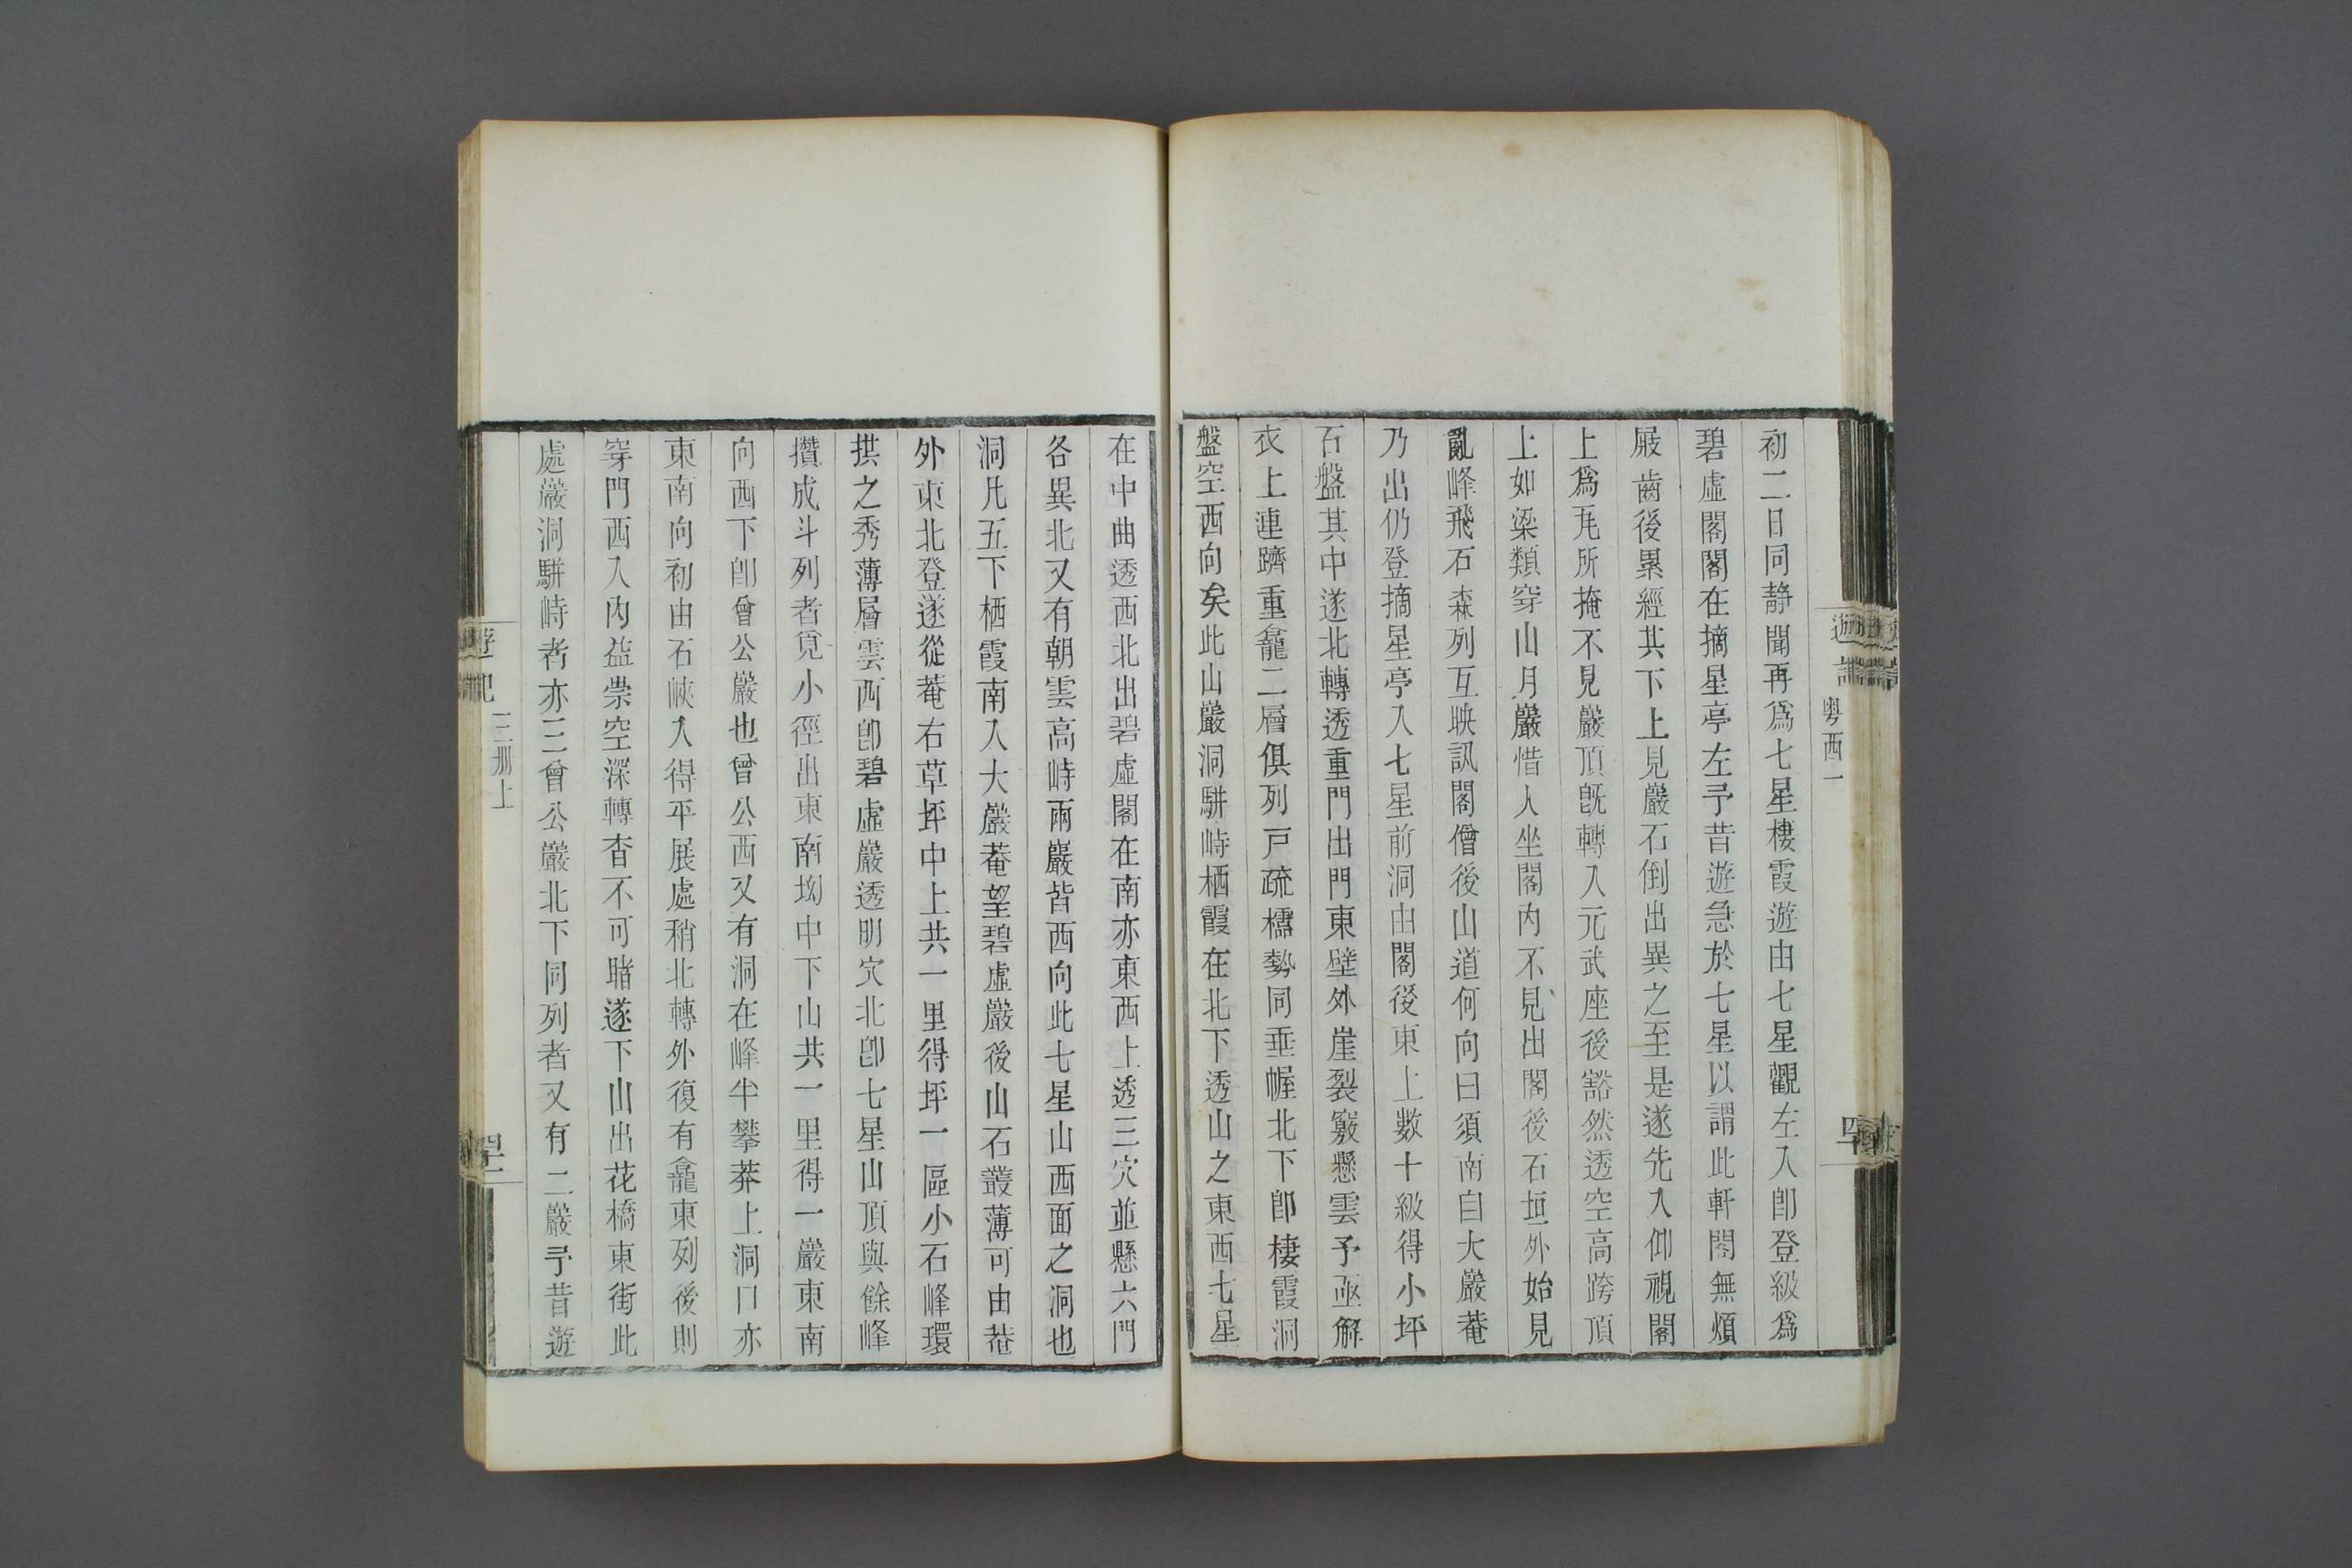 粤西一
初二日同静聞再爲七星棲霞遊由七星觀左入卽登級爲
碧虛閣閣在摘星亭左予昔遊急於七星以謂此軒閣無煩
屐齒後累經其下上見巖石倒出異之至是遂先入仰視閣
上爲瓦所掩不見巖頂旣轉入元武座後豁然透空高跨頂
上如梁類穿山月巖惜人坐閣内不見出閣後石垣外始見
亂峰飛石森列互映訊閣僧後山道何向曰須南自大巖菴
乃出仍登摘星亭入七星前洞由閣後東上數十級得小坪
石盤其中遂北轉透重門出門東壁外崖裂竅懸雲予亟解
衣上連躋重龕二層俱列戸疏櫺勢同垂幄北下卽棲霞洞
盤空西向矣此山巖洞駢峙栖霞在北下透山之東西七星
在中曲透西北出碧虛閣在南亦東西上透三穴並懸六門
各異北又有朝雲高峙兩巖皆西向此七星山西面之洞也
洞凡五下栖霞南入大巖菴望碧虛巖後山石叢薄可由菴
外東北登遂從菴右草坪中上共一里得坪一區小石峰環
拱之秀薄層雲西卽碧虛巖透明穴北卽七星山頂與餘峰
攢成斗列者覓小徑出東南坳中下山共一里得一巖東南
向西下卽曾公巖也曾公西又有洞在峰半攀莽上洞口亦
東南向初由石峽入得平展處稍北轉外復有龕東列後則
穿門西入内益崇空深轉杳不可睹遂下山出花橋東街此
處巖洞駢峙者亦三曾公巖北下同列者又有二巖予昔遊
遊記
三册上